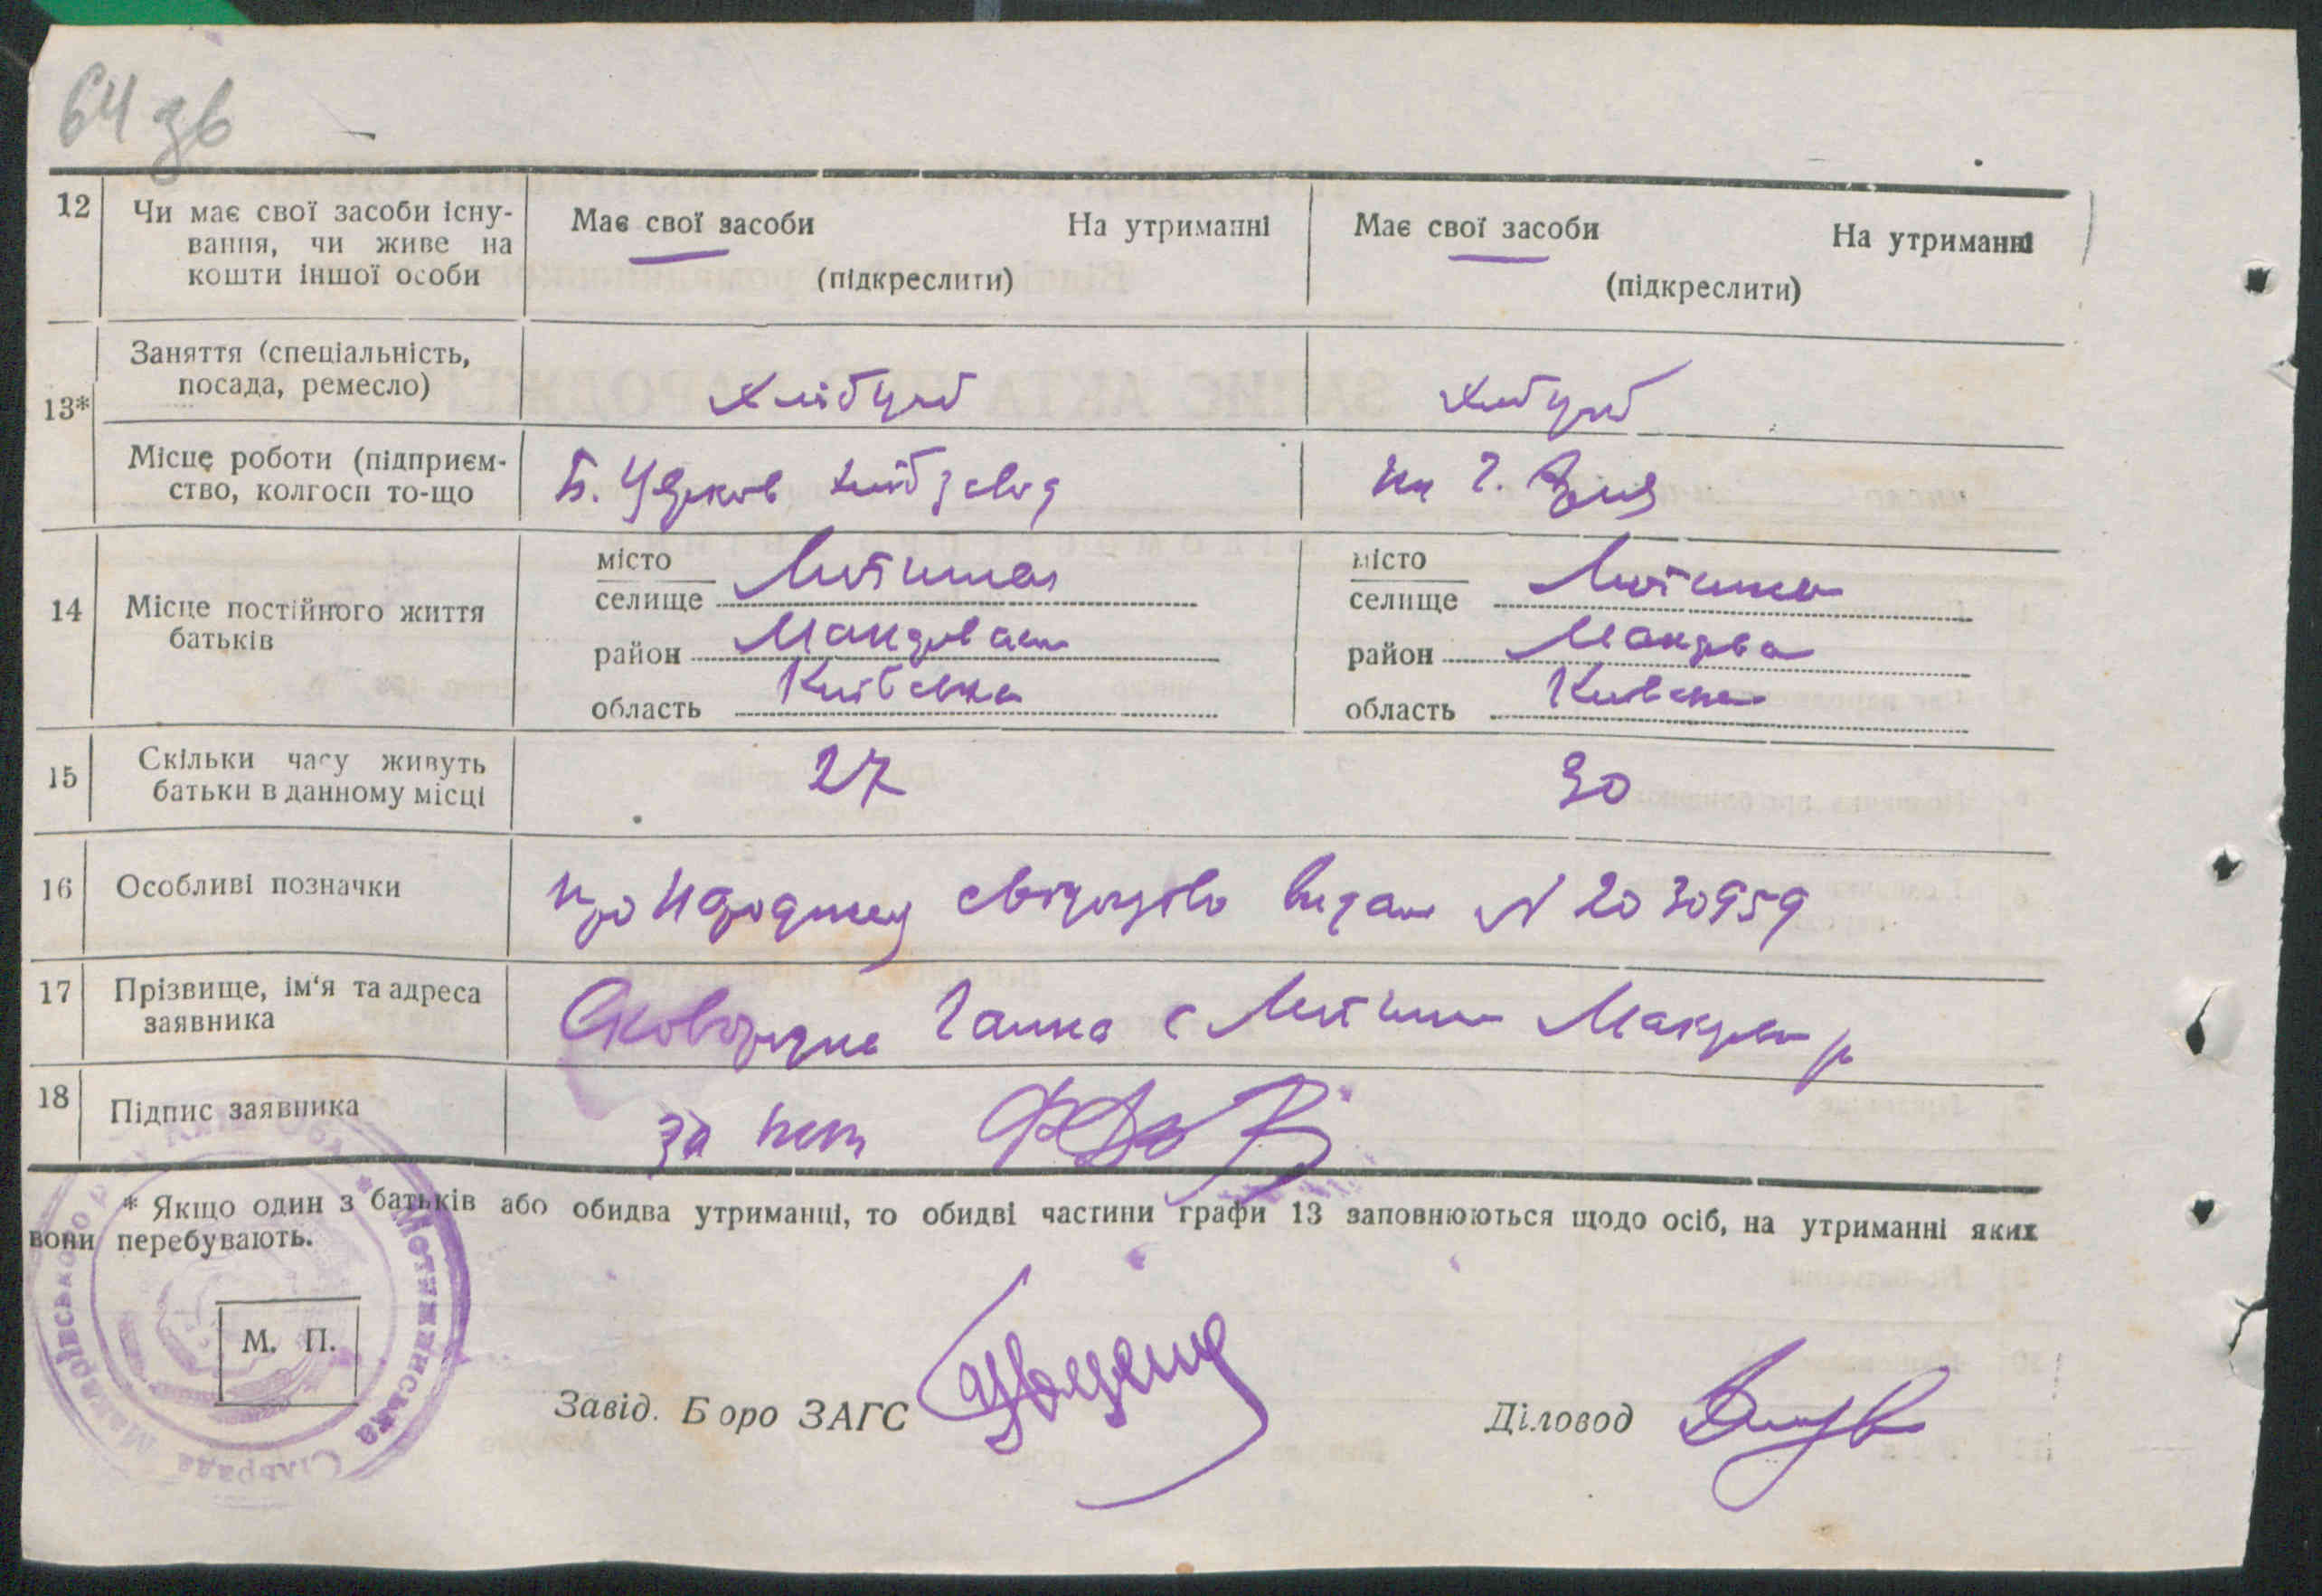 64 зв
12 Чи має свої засоби існу-
вання, чи живе на
кошти іншої особи
Має свої засоби На утриманні
(підкреслити)
Має свої засоби На утриманні
(підкреслити)
13* Заняття (спеціальність,
посада, ремесло)
Хлібороб
Хлібороб
Місце роботи (підприєм-
ство, колгосп то-що
Б.
14 Місце постійного життя
батьків
місто
селище Мотижин
район Макарівськ
область Київська
місто
селище Мотижин
район Макарів
область Київська
15 Скільки часу живуть
батьки в данному місці
27
30
16 Особливі позначки
про народження свідоцтво видан N 2030959
17 Прізвище, ім'я та адреса
заявника
Сковородна Ганна с Мотижин Макарів р
18 Підпис заявника
за неп
* Якщо один з батьків або обидва утриманці, то обидві частини графи 13 заповнюються щодо осіб, на утриманні яких
вони перебувають.
М. П.
Мотижинська Сільрада Макарівського р
Завід. Бюро ЗАГС
Діловод